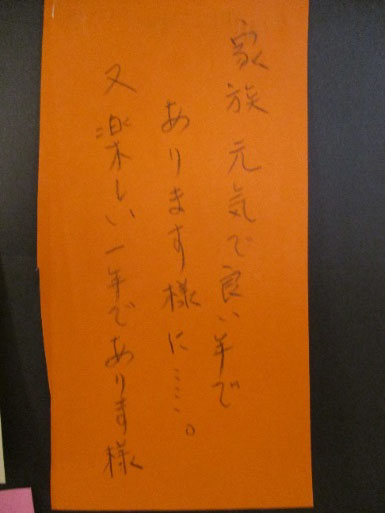 家族 元気で良い年で
あります様に……。
又 楽しい一年であります様